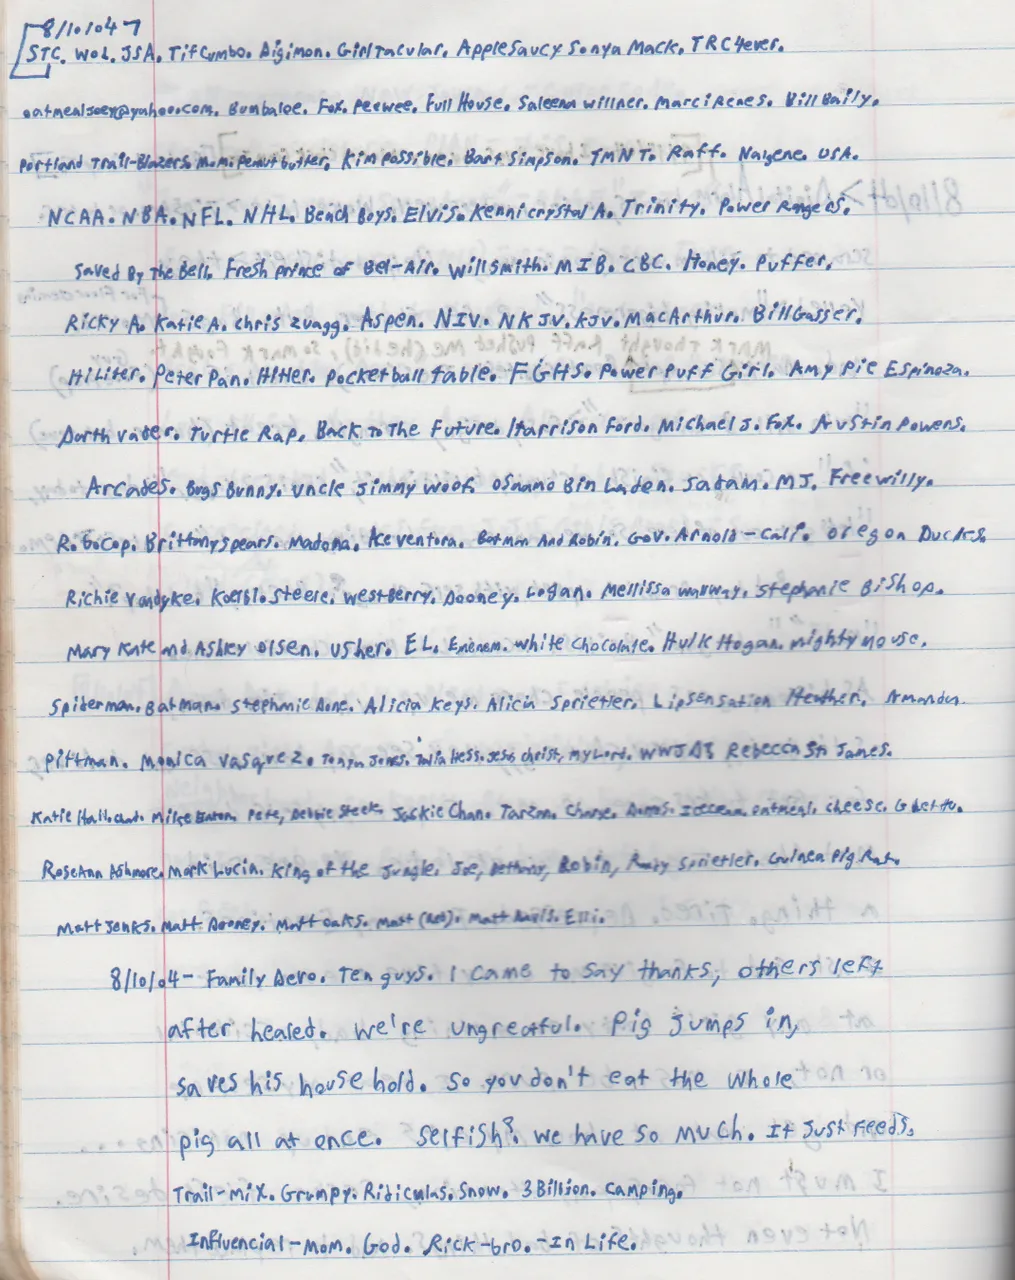 8/10/04
STC. WOL. JSA. Tif Cumbo. Digimon. Girl Tacular. Apple Saucy Sonya Mack. TRC4ever.
oatmealjoey@yahoo.com. Bombaloe. Fox. Peewee. Full House. Saleena Willner. Marci Renes. Bill Baily.
Portland Trail-Blazers. Mom. Peanut butter. Kim Possible. Bart Simpson. TMNT. Raff. Nalgene. USA.
NCAA. NBA. NFL. NHL. Beach Boys. Elvis. Kenni Crystal A. Trinity. Power Rangers.
Saved By The Bell. Fresh Prince of Bel-Air. Will Smith. MIB. CBC. Honey. Puffer.
Ricky A. Katie A. Chris Zuagg. Aspen. NIV. NKJV. KJV. MacArthur. Bill Gasser.
HiLiter. Peter Pan. Hitler. Pocketball table. FGHS. Power Puff Girl. Amy Pie Espinoza.
Darth Vader. Turtle Rap. Back To The Future. Harrison Ford. Michael J. Fox. Austin Powers.
Arcades. Bugs Bunny. Uncle Jimmy Woof. Osnamo Bin Laden. Sadam. MJ. Free Willy.
RoboCop. Brittany Spears. Madona. Ace Ventora. Batman And Robin. Gov. Arnold-Cali. Oregon Ducks.
Richie Vandyke. Koelbl. Steele. Westberry. Dooney. Logan. Mellissa Stephanie Bishop.
Mary Kate and Ashley Olsen. Usher. EL. Eminem. White Chocolate. Hulk Hogan. Mighty Mouse.
Spiderman. Batman. Stephanie Alicia Keys. Alicia Sprietler. Lipsensation Heather. Amanda
Pittman. Monica Vasquez. Tonya Jones. Julia Hess. Jesus Christ, my Lord. WWJD? Rebecca St. James.
Katie Mike Eaton. Pete, Debbie Steele. Jackie Chan. Tarzan. Icecream. Oatmeal. Cheese. Ghetto.
RoseAnn Ashmore. Mark Lucin. King of the Jungle. Joe, Bethany, Robin, Randy Sprietler. Guinea Pig Rat.
Matt Jenks. Matt Dooney. Matt Oaks. Matt (Red). Matt Davis. Elli.
8/10/04- Family Devo. Ten guys. I came to say thanks; others left
after healed. We're ungreatful. Pig jumps in,
saves his household. So you don't eat the whole
pig all at once. Selfish? We have so much. It just feeds.
Trail-mix. Grumpy. Ridiculas. Snow. 3 Billion. Camping.
Influencial-Mom. God. Rick-bro.-In Life.